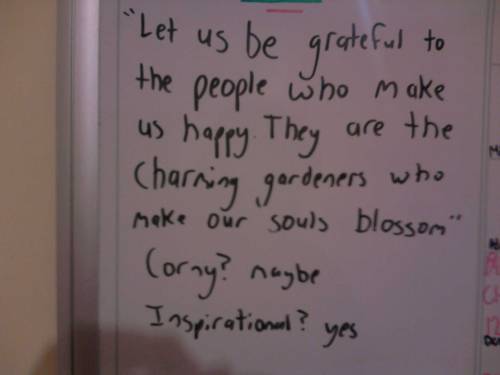 "Let us be grateful to
the people who make
us happy. They are the
Charming gardeners who
make our souls blossom"
Corny? maybe
Inspirational? yes